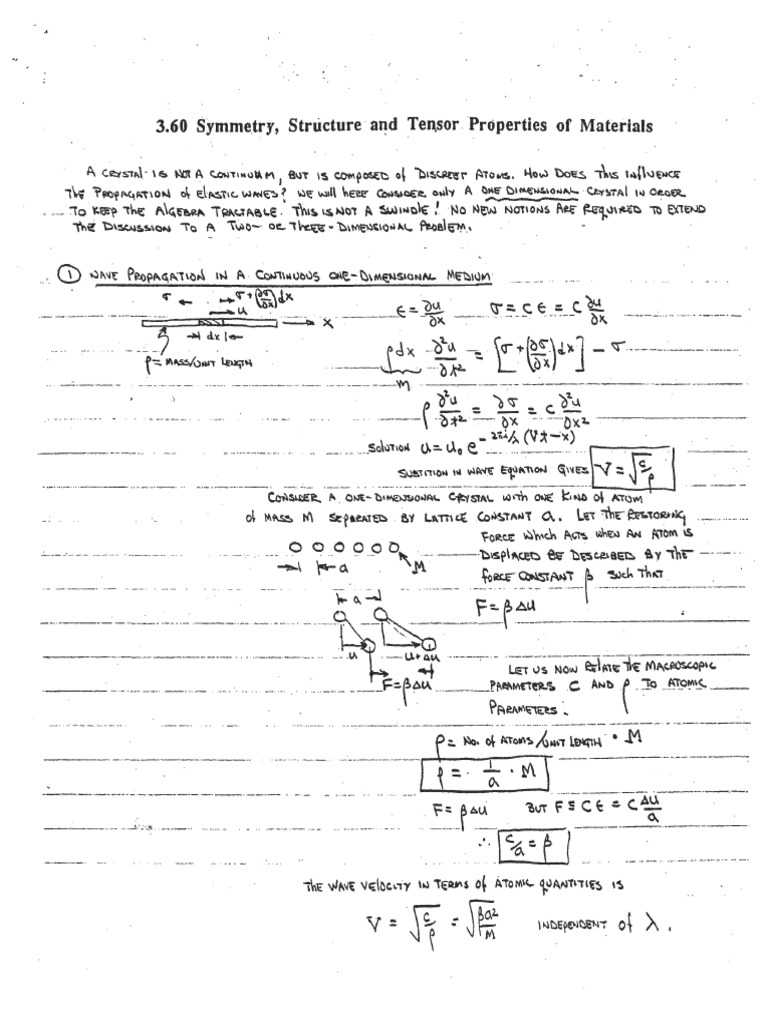 3.60 Symmetry, Structure and Tensor Properties of Materials
A CRYSTAL IS NOT A CONTINUUM, BUT IS COMPOSED OF DISCREET ATOMS. HOW DOES THIS INFLUENCE
THE PROPAGATION OF ELASTIC WAVES? WE WILL HERE CONSIDER ONLY A ONE DIMENSIONAL CRYSTAL IN ORDER
TO KEEP THE ALGEBRA TRACTABLE. THIS IS NOT A SWINDLE! NO NEW NOTIONS ARE REQUIRED TO EXTEND
THE DISCUSSION TO A TWO- OR THREE-DIMENSIONAL PROBLEM.
① WAVE PROPAGATION IN A CONTINUOUS ONE-DIMENSIONAL MEDIUM
σ ← → σ+(∂σ/∂x)dx
→ u
→ x
→| dx |←
ρ = MASS/UNIT LENGTH
ε = ∂u/∂x σ = C ε = C ∂u/∂x
ρdx ∂²u/∂t² = [σ + (∂σ/∂x)dx] − σ
m
ρ ∂²u/∂t² = ∂σ/∂x = C ∂²u/∂x²
SOLUTION u = u₀ e^(−2πi/λ (Vt−x))
SUBTITION IN WAVE EQUATION GIVES V = √(C/ρ)
CONSIDER A ONE-DIMENSIONAL CRYSTAL WITH ONE KIND OF ATOM
OF MASS M SEPARATED BY LATTICE CONSTANT a. LET THE RESTORING
FORCE WHICH ACTS WHEN AN ATOM IS
DISPLACED BE DESCRIBED BY THE
FORCE CONSTANT β SUCH THAT
F = βΔu
→| |← a
M
|← a →|
u u+Δu
F = βΔu
LET US NOW RELATE THE MACROSCOPIC
PARAMETERS C AND ρ TO ATOMIC
PARAMETERS.
ρ = NO. OF ATOMS/UNIT LENGTH · M
ρ = 1/a · M
F = βΔu BUT F ≡ C ε = C Δu/a
∴ C/a = β
THE WAVE VELOCITY IN TERMS OF ATOMIC QUANTITIES IS
V = √(C/ρ) = √(βa²/M) INDEPENDENT OF λ.